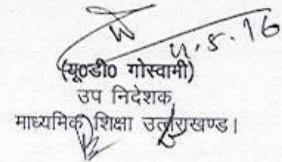 4.5.16
(यू०डी० गोस्वामी)
उप निदेशक,
माध्यमिक शिक्षा उत्तराखण्ड।